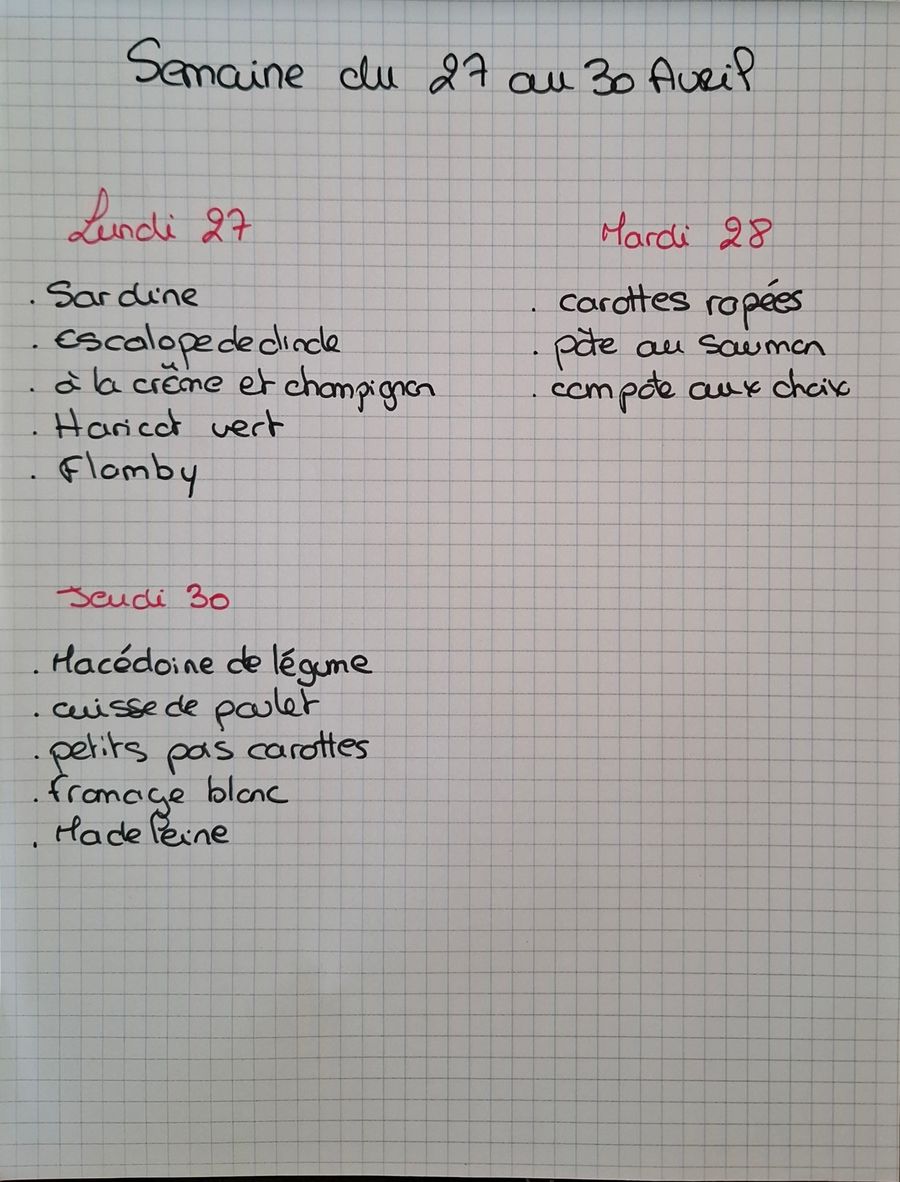 Semaine du 27 au 30 Avril
Lundi 27
. Sardine
. escalope de dinde
. à la crème et champignon
. Haricot vert
. Flamby
Mardi 28
. carottes rapées
. pâte au saumon
. compote aux choix
Jeudi 30
. Macédoine de légume
. cuisse de poulet
. petits pois carottes
. fromage blanc
. Madeleine